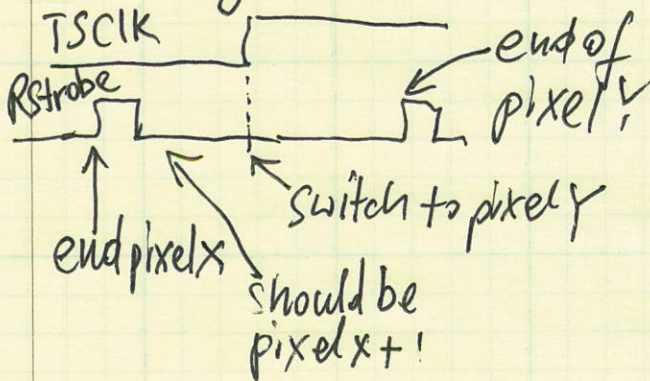 TSCLK
RStrobe
end of
pixel Y
switch to pixel Y
end pixel x
should be
pixel x + 1